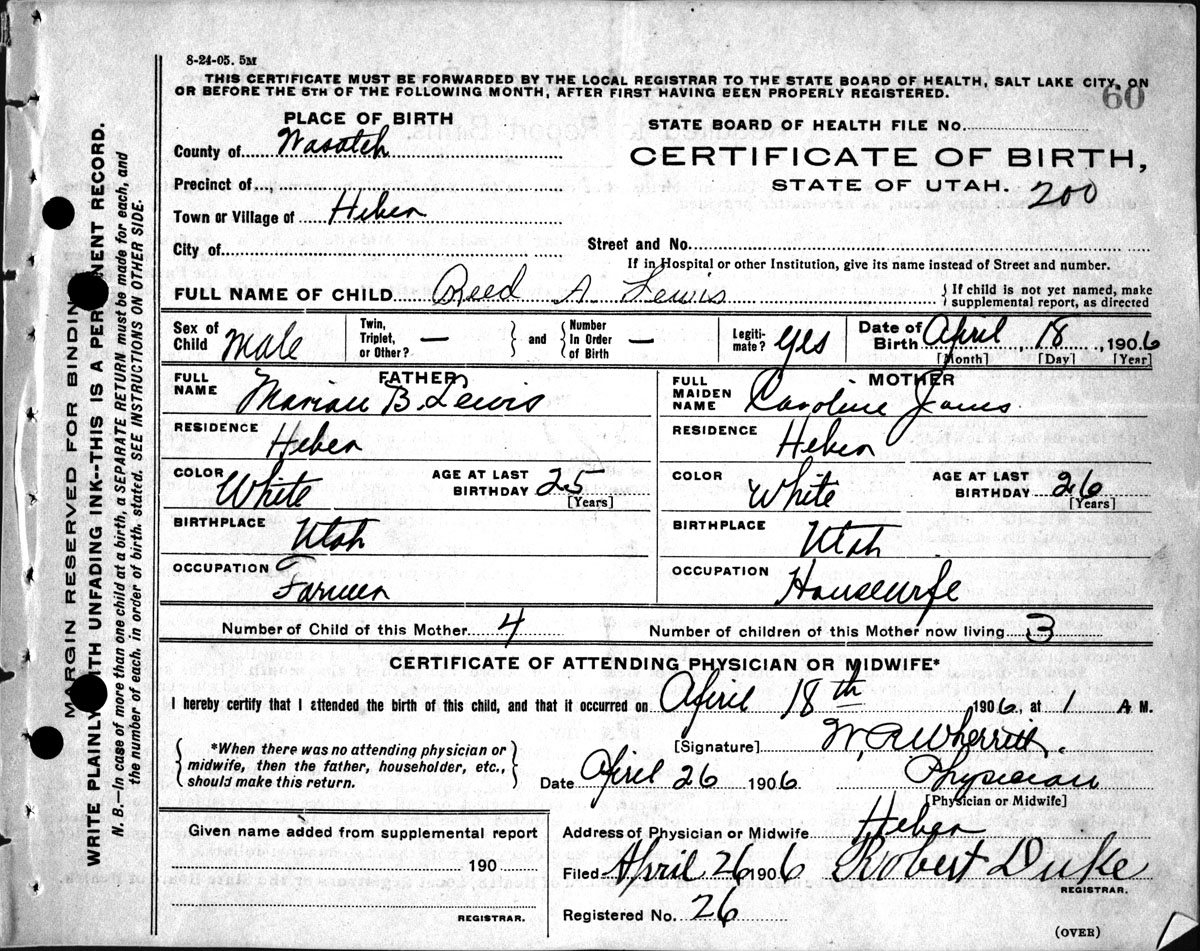 8-24-05. 5M
THIS CERTIFICATE MUST BE FORWARDED BY THE LOCAL REGISTRAR TO THE STATE BOARD OF HEALTH, SALT LAKE CITY, ON
OR BEFORE THE 5TH OF THE FOLLOWING MONTH, AFTER FIRST HAVING BEEN PROPERLY REGISTERED.
60
PLACE OF BIRTH
STATE BOARD OF HEALTH FILE No.
County of Wasatch
CERTIFICATE OF BIRTH,
Precinct of
STATE OF UTAH. 200
Town or Village of Heber
City of
Street and No.
If in Hospital or other Institution, give its name instead of Street and number.
FULL NAME OF CHILD Reed A. Lewis } If child is not yet named, make
supplemental report, as directed
Sex of Child Male
Twin, Triplet, or Other? —
and
Number In Order of Birth —
Legiti-mate? yes
Date of Birth April, 18, 1906
[Month] [Day] [Year]
FATHER
FULL NAME Marian B. Lewis
MOTHER
FULL MAIDEN NAME Caroline
RESIDENCE Heber
RESIDENCE Heber
COLOR White
AGE AT LAST BIRTHDAY 25 [Years]
COLOR White
AGE AT LAST BIRTHDAY 26 [Years]
BIRTHPLACE Utah
BIRTHPLACE Utah
OCCUPATION Farmer
OCCUPATION Housewife
Number of Child of this Mother 4
Number of children of this Mother now living 3
CERTIFICATE OF ATTENDING PHYSICIAN OR MIDWIFE*
I hereby certify that I attended the birth of this child, and that it occurred on April 18th 1906, at 1 A M.
*When there was no attending physician or
midwife, then the father, householder, etc.,
should make this return.
[Signature] W. R. Wherritt.
Date April 26 1906 Physician
[Physician or Midwife]
Given name added from supplemental report
190
REGISTRAR.
Address of Physician or Midwife Heber
Filed April 26 1906 Robert Duke
REGISTRAR.
Registered No. 26
(OVER)
MARGIN RESERVED FOR BINDING
WRITE PLAINLY WITH UNFADING INK--THIS IS A PERMANENT RECORD.
N. B.—In case of more than one child at a birth, a SEPARATE RETURN must be made for each, and
the number of each, in order of birth, stated. SEE INSTRUCTIONS ON OTHER SIDE.